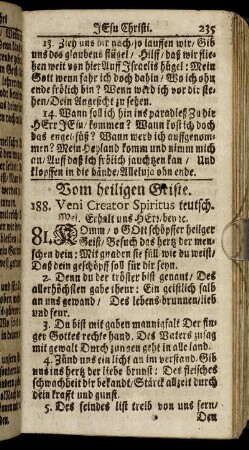 JEsu Christi. 235
13. Zieh uns dir nach/so lauffen wir/ Gib
uns des glaubens flügel/ Hilff/ daß wir flie-
hen weit von hier Auff Israelis hügel: Mein
Gott wenn fahr ich doch dahin/ Wo ich ohn
ende frölich bin? Wenn werd ich vor dir ste-
hen/ Dein Angesicht zu sehen.
14. Wann soll ich hin ins paradieß Zu dir
HErr JEsu/ kommen? Wann kost ich doch
das engel-süß? Wann werd ich auffgenom-
men? Mein Heyland komm und nimm mich
an/ Auff daß ich frölich jauchzen kan/ Und
klopffen in die hände/ Alleluja ohn ende.
Vom heiligen Geiste.
188. Veni Creator Spiritus teutsch.
Mel. Erhalt uns HErr/ bey rc.
81. KOmm/ o GOtt schöpffer heilger
Geist/ Besuch das hertz der men-
schen dein: Mit gnaden sie füll wie du weist
Daß dein geschöpff soll für dir seyn.
2. Denn du der tröster bist genant/ Des
allerhöchsten gabe theur: Ein geistlich salb
an uns gewand/ Des lebens-brunnen/lieb
und feur.
3. Du bist mit gaben mannigfalt Der fin-
ger Gottes rechte hand. Des Vaters zusag
mit gewalt Durch zungen geht in alle land.
4. Zünd uns ein licht an im verstand. Gib
uns ins hertz der liebe brunst: Des fleisches
schwachheit dir bekandt/ Stärck allzeit durch
dein krafft und gunst.
5. Des feindes list treib von uns fern/
Den